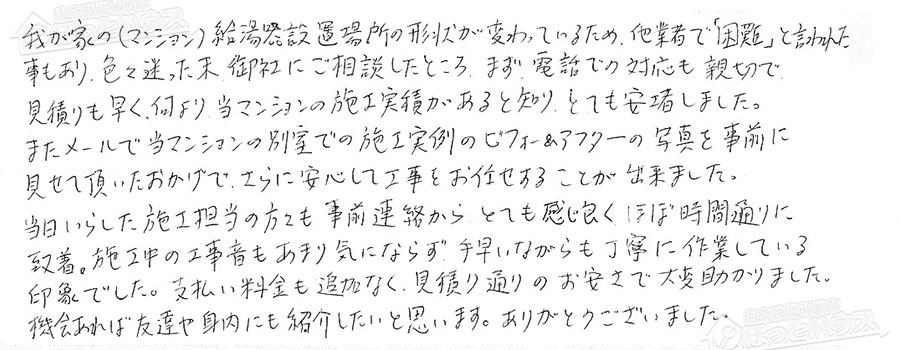 我が家の(マンション)給湯器設置場所の形状が変わっているため、他業者で「困難」と言われた
事もあり、色々迷った末、御社にご相談したところ、まず、電話での対応も親切で、
見積りも早く、何より、当マンションの施工実績があると知り、とても安堵しました。
またメールで当マンションの別室での施工実例のビフォー&アフターの写真を事前に
見せて頂いたおかげで、さらに安心して工事をお任せすることが出来ました。
当日いらした施工担当の方々も事前連絡から、とても感じ良く、ほぼ時間通りに
到着。施工中の工事音もあまり気にならず、手早いながらも丁寧に作業している
印象でした。支払い料金も追加なく、見積り通りのお安さで大変助かりました。
機会あれば友達や身内にも紹介したいと思います。ありがとうございました。